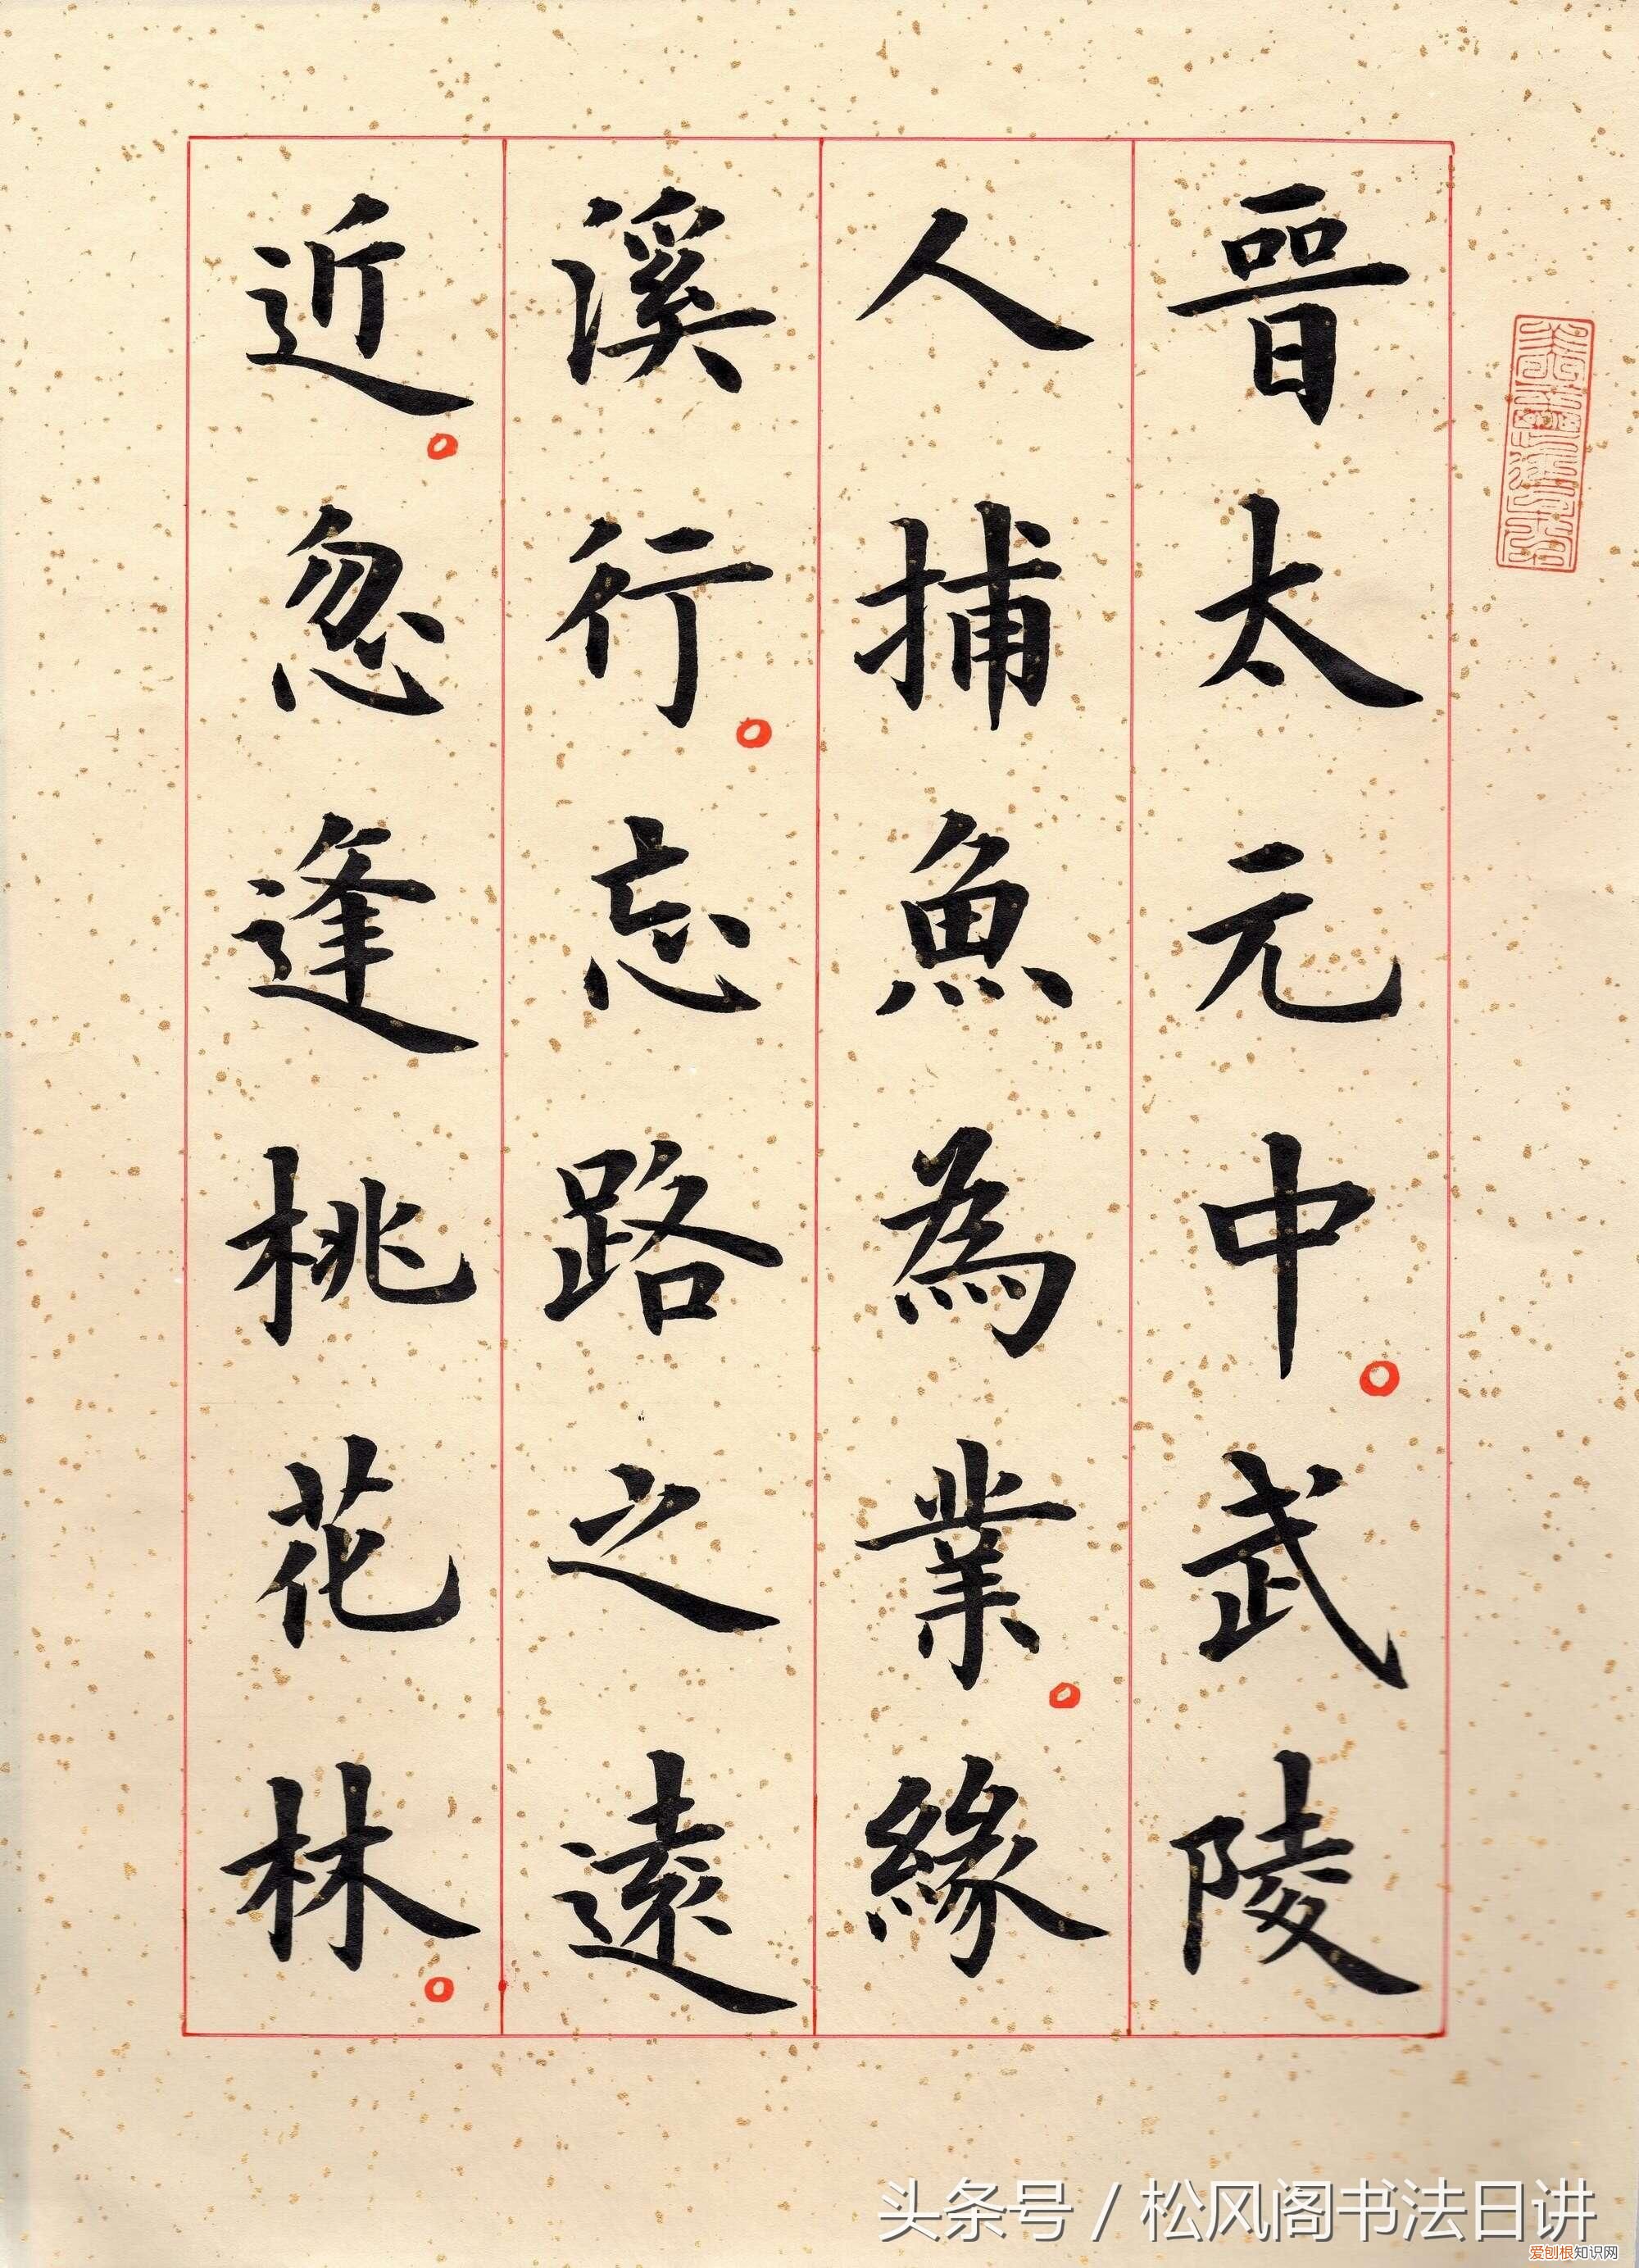 晉太元中。武陵
人捕魚為業。緣
溪行。忘路之遠
近。忽逢桃花林。
头条号 / 松风阁书法日讲
爱刨根知识网